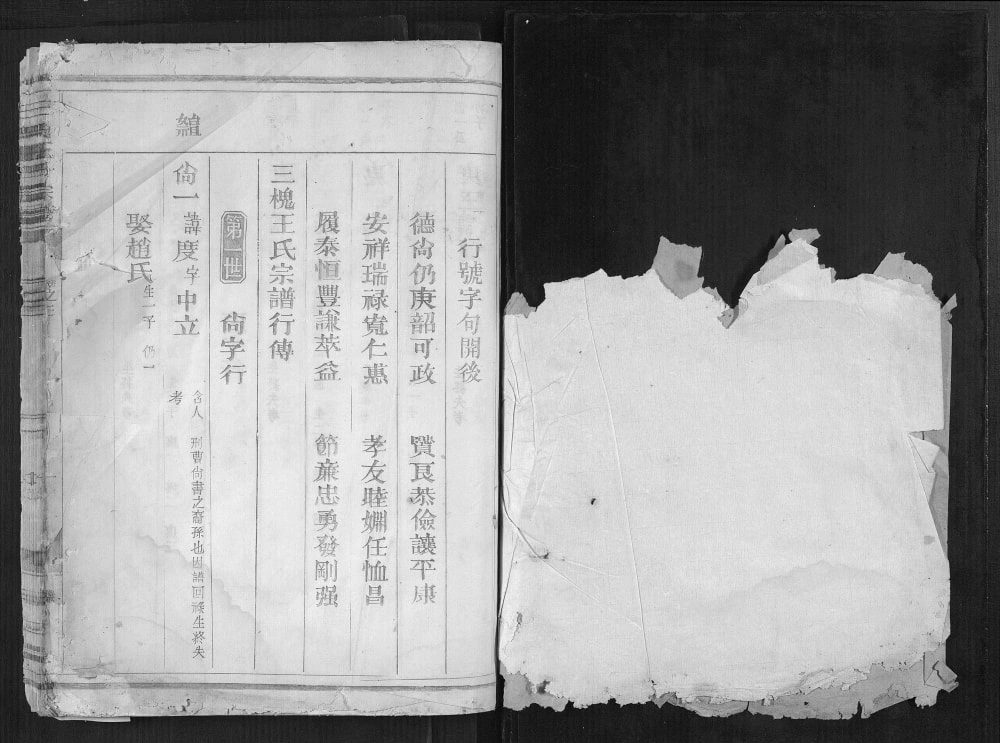 行號字句開後
德尙仍庚韶可政 賢良恭儉讓平康
安祥瑞祿寬仁惠 孝友睦婣任恤昌
履泰恒豐謙萃益 節廉忠勇發剛强
三槐王氏宗譜行傳
第一世 尙字行
尙一 諱度 字中立 刑曹尙書之裔孫也因譜回祿生終失考
娶趙氏 生一子 仍一